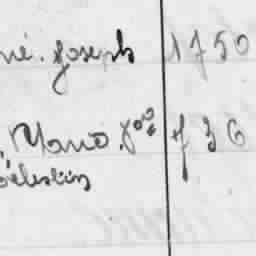 né. Joseph 1750
Mario. Jos 736
Célestin